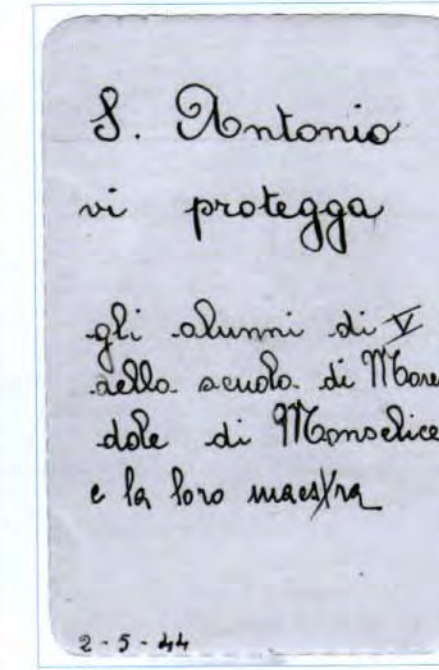 S. Antonio
vi protegga
gli alunni di V
della scuola di More
dole di Monselice
e la loro maestra
2-5-44